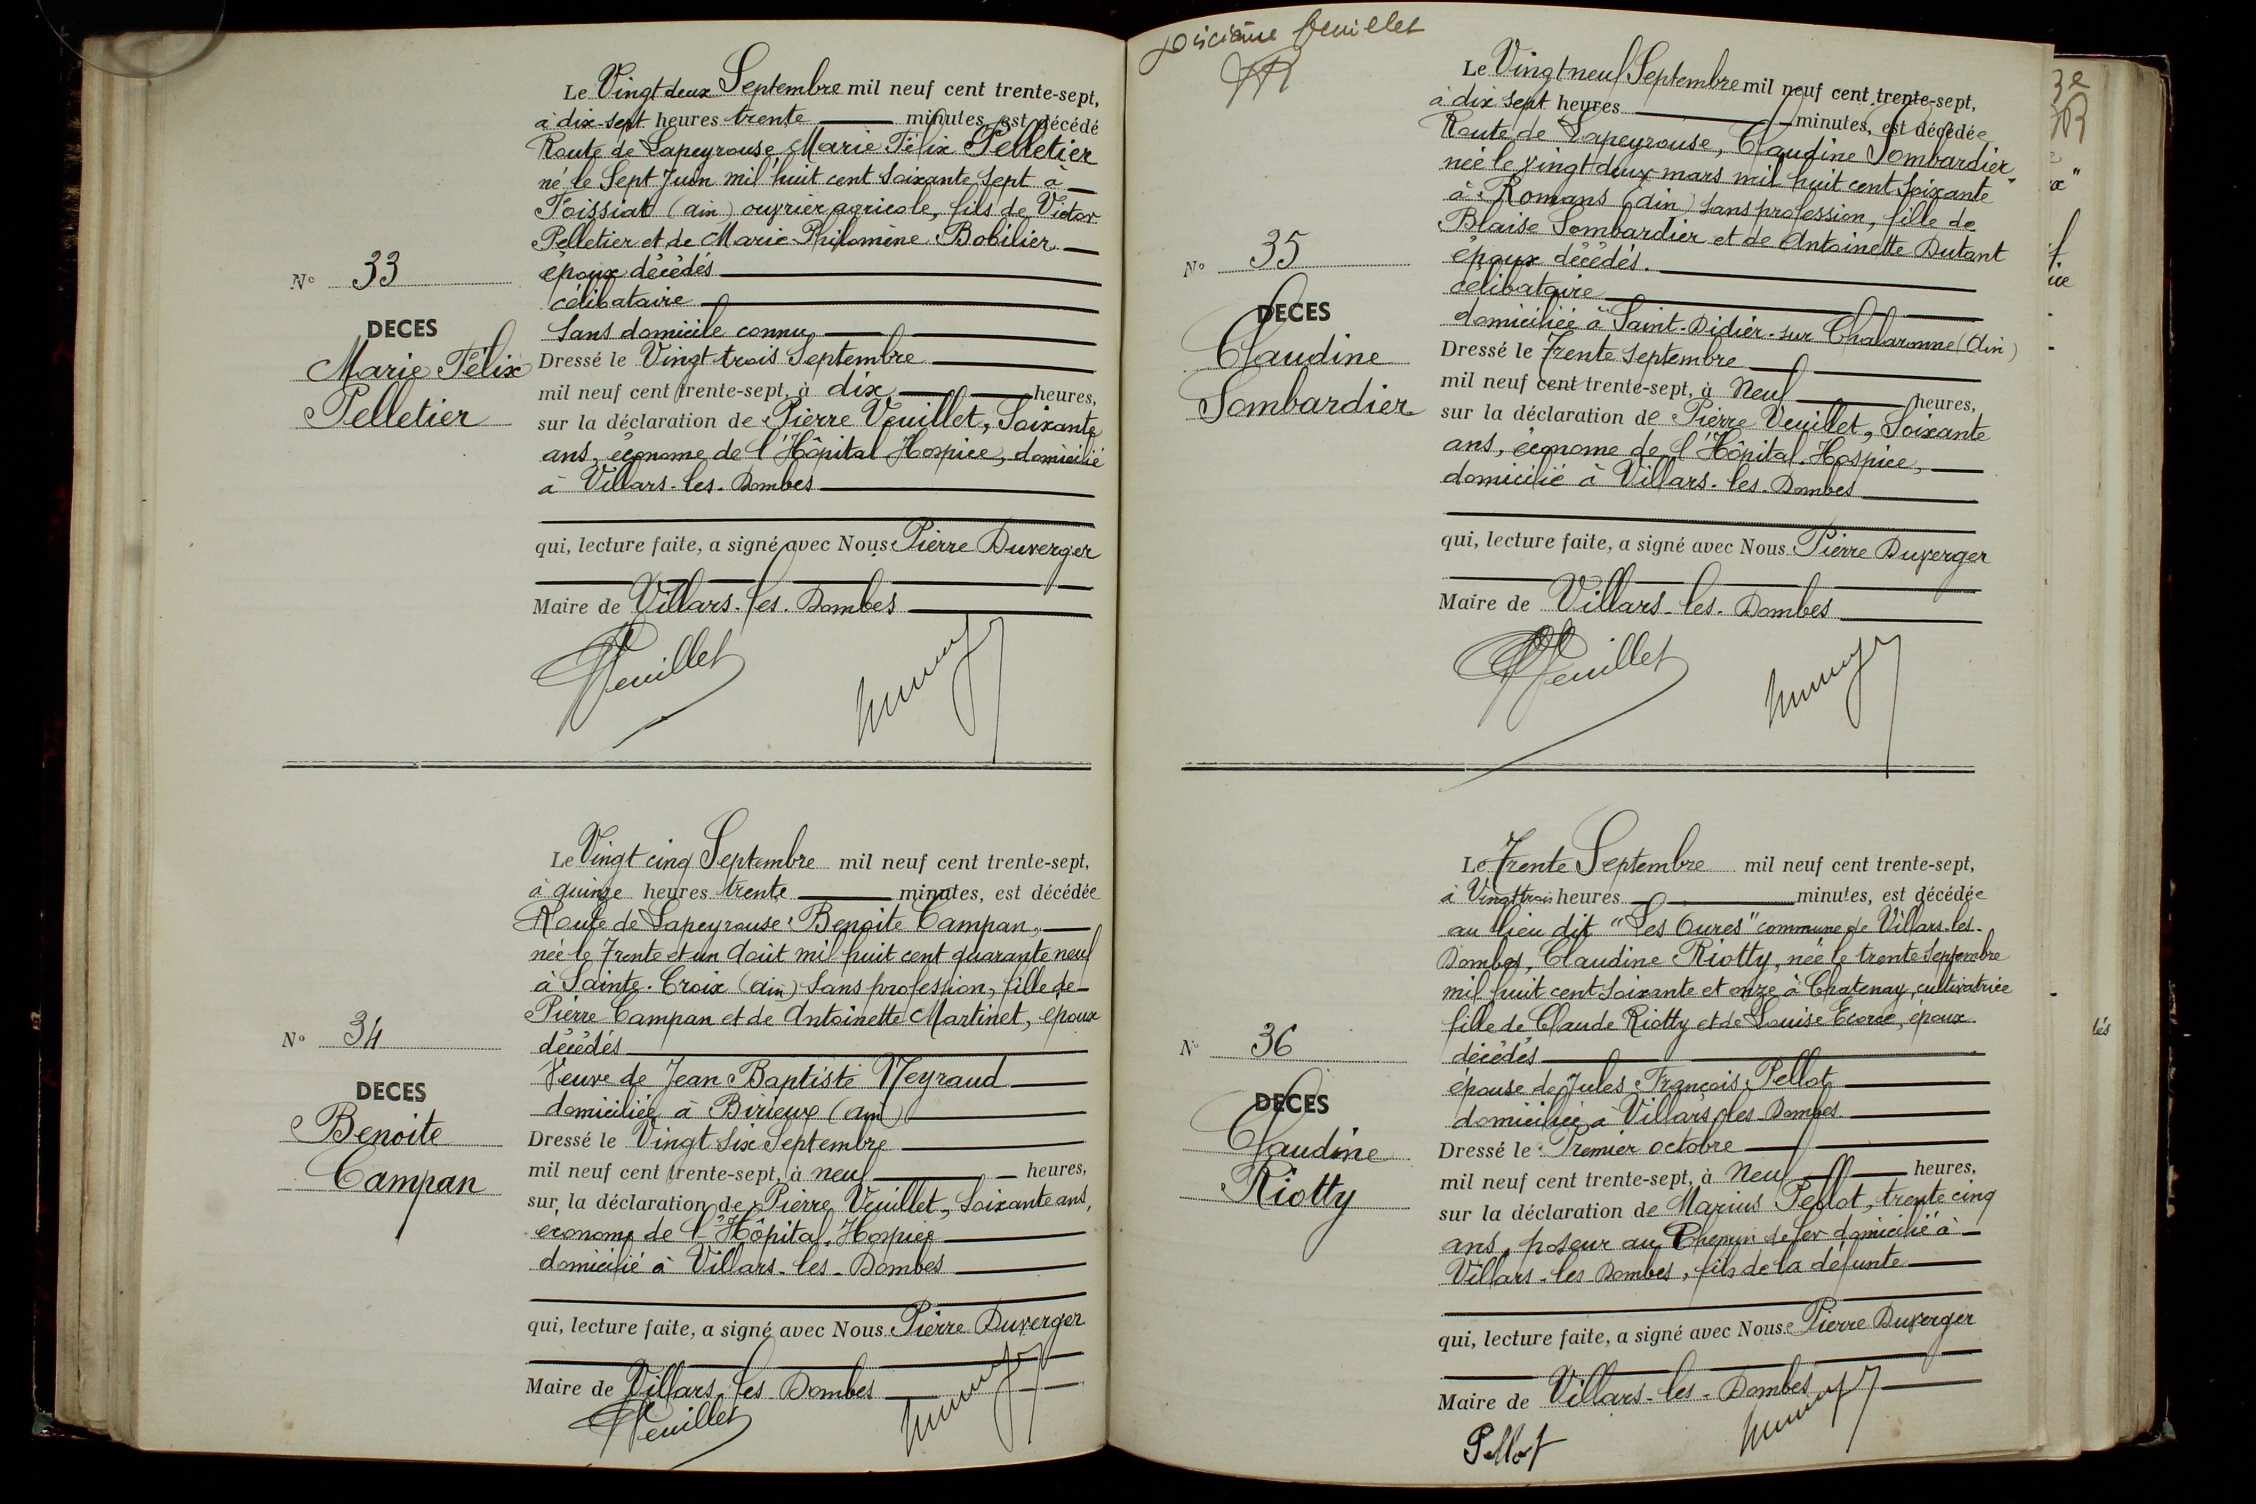 Le Vingt deux Septembre mil neuf cent trente-sept,
à dix-sept heures trente minutes, est décédé
Route de Lapeyrouse, Marie Félix Pelletier
né le Sept Juin mil huit cent soixante sept à
Foissiat (ain) ouvrier agricole, fils de Victor
Pelletier et de Marie Philomène Bobilier
époux décédés
célibataire
Sans domicile connu
N° 33
DECES
Marie Félix
Pelletier
Dressé le Vingt trois Septembre
mil neuf cent trente-sept, à dix heures,
sur la déclaration de Pierre Veuillet, Soixante
ans, économe de l'Hôpital Hospice, domicilié
à Villars-les-Dombes
qui, lecture faite, a signé avec Nous Pierre Duverger
Maire de Villars-les-Dombes
Veuillet
Le Vingt cinq Septembre mil neuf cent trente-sept,
à quinze heures trente minutes, est décédée
Route de Lapeyrouse Benoite Campan,
née le Trente et un Août mil huit cent quarante neuf
à Sainte-Croix (ain) sans profession, fille de
Pierre Campan et de Antoinette Martinet, époux
décédés
Veuve de Jean Baptiste Neyraud
domiciliée à Birieux (ain)
N° 34
DECES
Benoite
Campan
Dressé le Vingt Six Septembre
mil neuf cent trente-sept, à neuf heures,
sur la déclaration de Pierre Veuillet, Soixante ans,
économe de l'Hôpital-Hospice
domicilié à Villars-les-Dombes
qui, lecture faite, a signé avec Nous Pierre Duverger
Maire de Villars les Dombes
Veuillet
feuillet
Le Vingt neuf Septembre mil neuf cent trente-sept,
à dix sept heures minutes, est décédée
Route de Lapeyrouse, Claudine Sombardier
née le vingt deux mars mil huit cent soixante
à Romans (Ain) sans profession, fille de
Blaise Sombardier et de Antoinette Dutant
époux décédés.
célibataire
domiciliée à Saint-Didier-sur Chalaronne (Ain)
N° 35
DECES
Claudine
Sombardier
Dressé le Trente Septembre
mil neuf cent trente-sept, à Neuf heures,
sur la déclaration de Pierre Veuillet, Soixante
ans, économe de l'Hôpital-Hospice,
domicilié à Villars-les-Dombes
qui, lecture faite, a signé avec Nous Pierre Duverger
Maire de Villars-les-Dombes
Veuillet
Le Trente Septembre mil neuf cent trente-sept,
à Vingt trois heures minutes, est décédée
au lieu dit "Les Oures" commune de Villars-les-
Dombes, Claudine Riotty, née le trente Septembre
mil huit cent soixante et onze à Chatenay, cultivatrice
fille de Claude Riotty et de Louise Ecorce, époux
décédés
épouse de Jules François Pellot
domiciliée à Villars les Dombes
N° 36
DECES
Claudine
Riotty
Dressé le Premier octobre
mil neuf cent trente-sept, à Neuf heures,
sur la déclaration de Marius Pellot, trente cinq
ans, poseur au Chemin de fer domicilié à
Villars-les Dombes, fils de la défunte
qui, lecture faite, a signé avec Nous Pierre Duverger
Maire de Villars-les-Dombes
Pellot